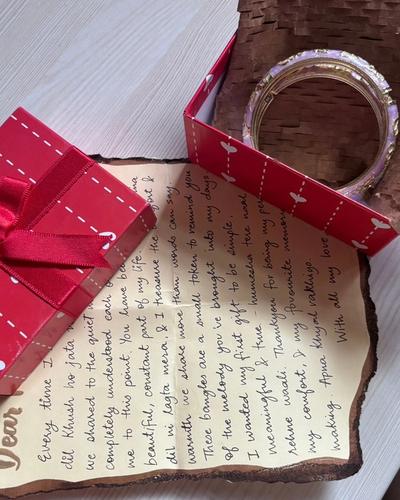 Dear
Every time I
dil khush ho jata
we shared to the quiet
completely understood each
me to this point. You have
beautiful, constant part of my life. &
dil ni lagta mera, & I treasure the
warmth we share more than words can say
These bangles are a small token to remind you
of the melody you've brought into my days
I wanted my first gift to be simple,
meaningful & true - humesha tere naal
rehne waali. Thankyou for being my
my comfort, & my favourite
making. Apna khyal rakhiyo.
With all my love